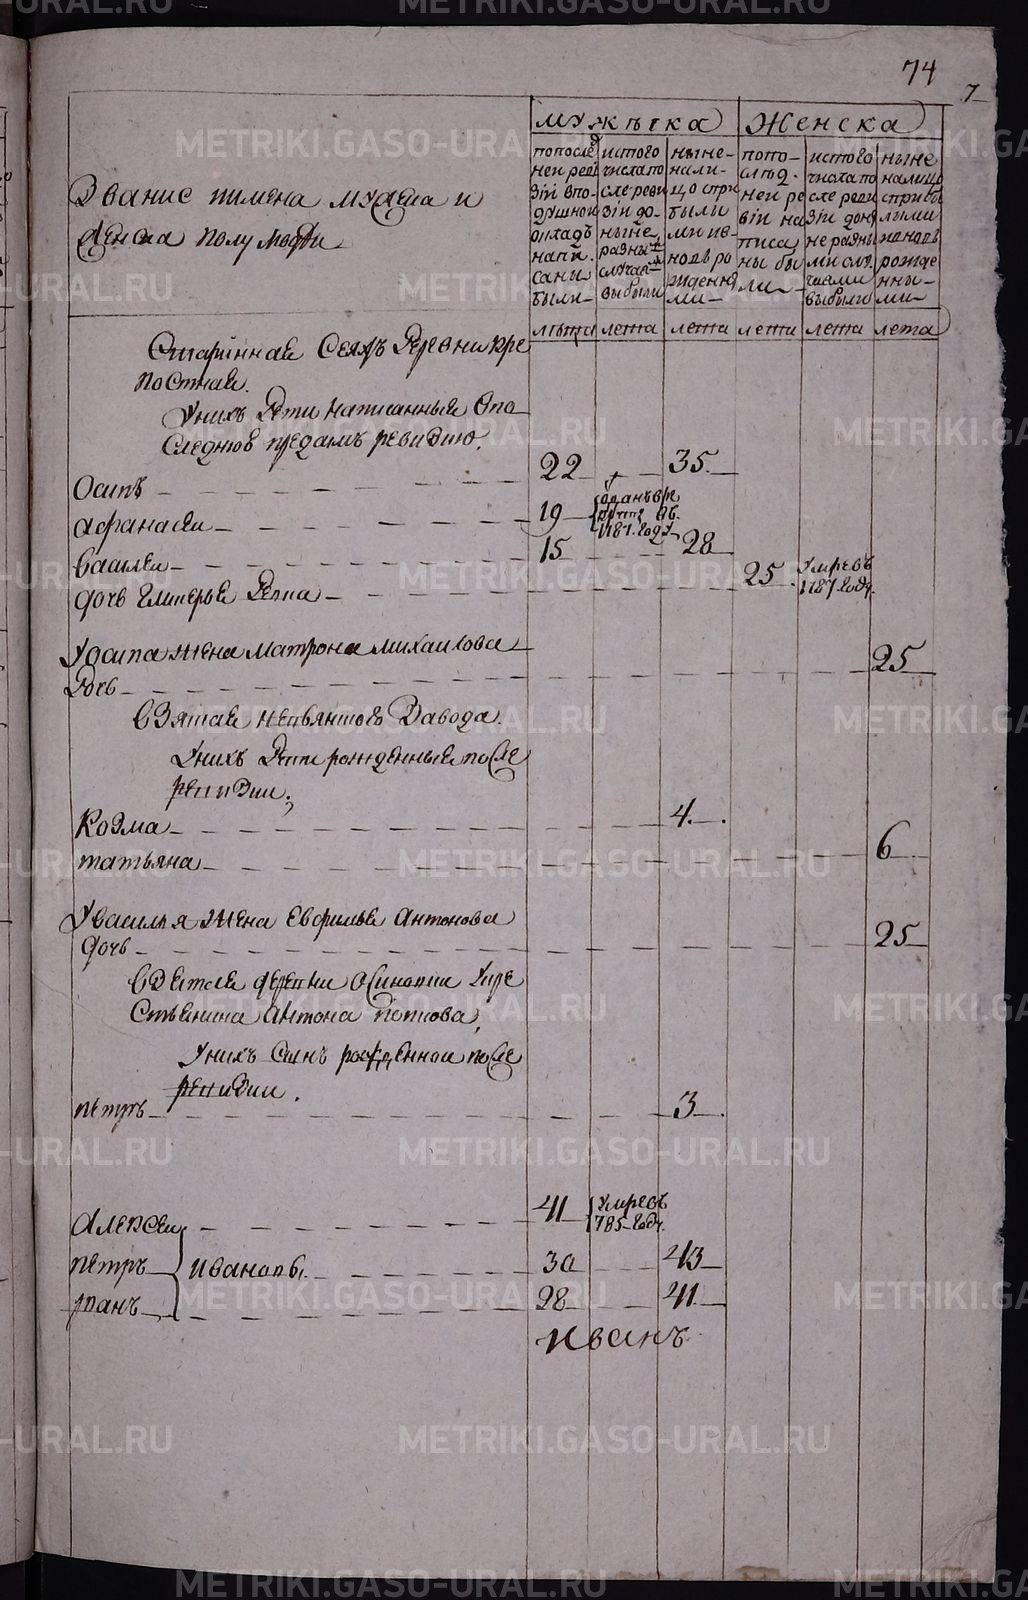 74
7
мужеска
женска
Званис имена мужеска и
женска полу люди
попослед
ней реви
зіи впо
душной
окладъ
напи
саны
были
истого
числа по
сле реви
зіи до
ныне
разны
случаи
выбыли
ныне
нали-
цо стри
были
ми нв
новь ро
жденны
ми
попо-
след.
ней ре
віи на
писа
ны бы
ли
истого
числа по
сле реви
зіи доны
не разны
ми слу
чаями
выбыли
ныне
налицо
стрибы
лыми
вновь
рожде
нны-
ми
лѣта лета лета лета лета лета
Старинная Сеяж деревни кре
постная.
Унихъ дети написанныя впо
следнюю предамъ ревизию.
Осипъ 22 35
Афанасеи 19 отданъ в ре
круты въ
1787 году
Василеи 15 28
дочь Гликерья девка 25 Умре въ
1787 году.
У осипа жена матрона михаилова
дочь 25
Взятая невьянтого завода.
Унихъ дети рожденные после
ревизии.
Козма 4
татьяна 6
У василья жена Евфимья антонова
дочь 25
Взятая деревни Осиновки кре
стьянина антона попова,
Унихъ сынъ рожденнои после
ревизии.
петръ 3
Алексеи 41 Умре въ
785 году.
петръ Ивановы 30 43
иванъ 28 41
Иванъ
METRIKI.GASO-URAL.RU